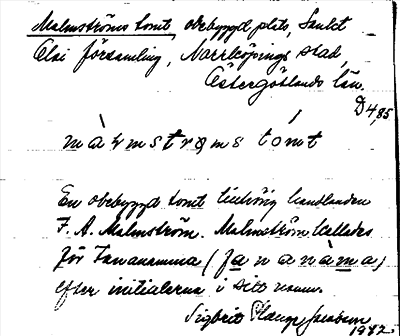 Malmströms tomt, obebyggd plats, Sankt
Olai församling, Norrköpings stad,
Östergötlands län.
D 4,85
màrmstrǫms tómt
En obebyggd tomt tillhörig handlanden
F. A. Malmström. Malmström kallades
för Fananamma (fananàma)
efter initialerna i sitt namn.
Sigbrit
1982.